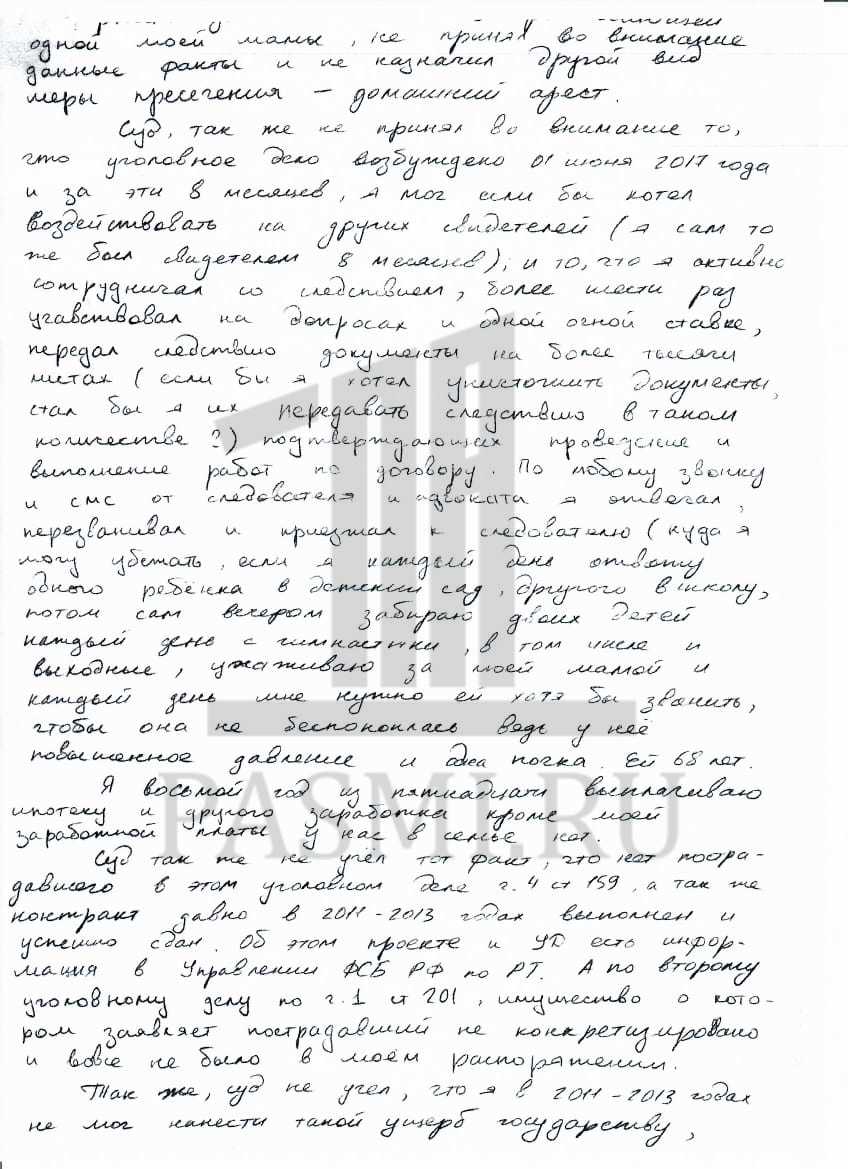 одной моей мамы, не принял во внимание
данные факты и не назначил другой вид
меры пресечения – домашний арест.
Суд, так же не принял во внимание то,
что уголовное дело возбуждено 01 июня 2017 года
и за эти 8 месяцев, я мог если бы хотел
воздействовать на других свидетелей (я сам то
же был свидетелем 8 месяцев); и то, что я активно
сотрудничал со следствием, более шести раз
участвовал на допросах и одной очной ставке,
передал следствию документы на более тысячи
листах (если бы я хотел уничтожить документы,
стал бы я их передавать следствию в таком
количестве?) подтверждающих проведение и
выполнение работ по договору. По любому звонку
и смс от следователя и адвоката я отвечал,
перезванивал и приезжал к следователю (куда я
могу убежать, если я каждый день отвожу
одного ребёнка в детский сад, другого в школу,
потом сам вечером забираю двоих детей
каждый день с гимнастики, в том числе и
выходные, ухаживаю за моей мамой и
каждый день мне нужно ей хотя бы звонить,
чтобы она не беспокоилась ведь у неё
повышенное давление и одна почка. Ей 68 лет.
Я восьмой год из пятнадцати выплачиваю
ипотеку и другого заработка кроме моей
заработной платы у нас в семье нет.
Суд так же не учёл тот факт, что нет постра-
давшего в этом уголовном деле ч.4 ст 159, а так же
контракт давно в 2011-2013 годах выполнен и
успешно сдан. Об этом проекте и УД есть инфор-
мация в Управлении ФСБ РФ по РТ. А по второму
уголовному делу по ч.1 ст 201, имущество о кото-
ром заявляет пострадавший не конкретизировано
и вовсе не было в моём распоряжении.
Так же, суд не учел, что я в 2011-2013 годах
не мог нанести такой ущерб государству,
PASMI.RU